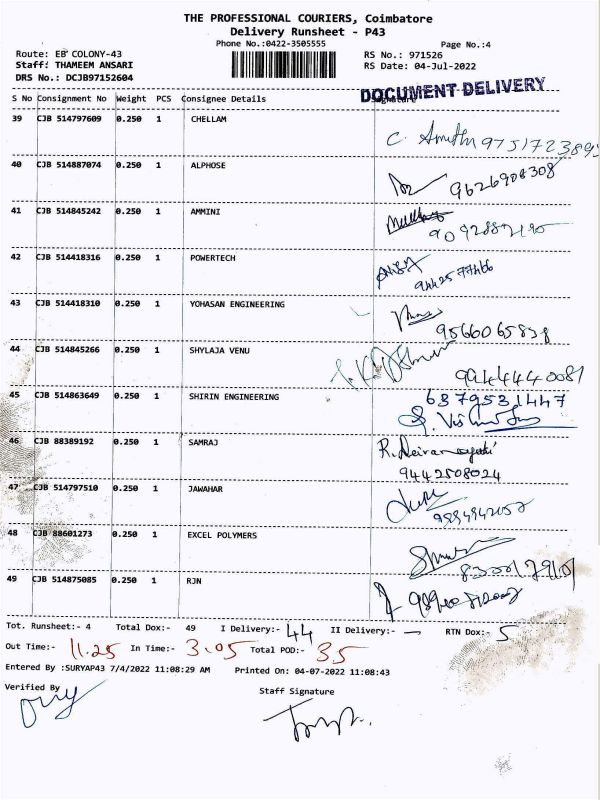 THE PROFESSIONAL COURIERS, Coimbatore
Delivery Runsheet - P43
Phone No.:0422-3505555
Page No.:4
Route: EB COLONY-43
RS No.: 971526
Staff: THAMEEM ANSARI
RS Date: 04-Jul-2022
DRS No.: DCJB97152604
DOCUMENT DELIVERY
S No Consignment No Weight PCS Consignee Details Signature
39 CJB 514797609 0.250 1 CHELLAM
40 CJB 514887074 0.250 1 ALPHOSE
9626908308
41 CJB 514845242 0.250 1 AMMINI
42 CJB 514418316 0.250 1 POWERTECH
43 CJB 514418310 0.250 1 YOHASAN ENGINEERING
9566065838
44 CJB 514845266 0.250 1 SHYLAJA VENU
9944440081
45 CJB 514863649 0.250 1 SHIRIN ENGINEERING
6379531447
46 CJB 88389192 0.250 1 SAMRAJ
9442508024
47 CJB 514797510 0.250 1 JAWAHAR
48 CJB 88601273 0.250 1 EXCEL POLYMERS
49 CJB 514875085 0.250 1 RJN
Tot. Runsheet:- 4 Total Dox:- 49 I Delivery:- 44 II Delivery:- — RTN Dox:- 5
Out Time:- 11.25 In Time:- 3.05 Total POD:- 35
Entered By :SURYAP43 7/4/2022 11:08:29 AM Printed On: 04-07-2022 11:08:43
Verified By
Staff Signature